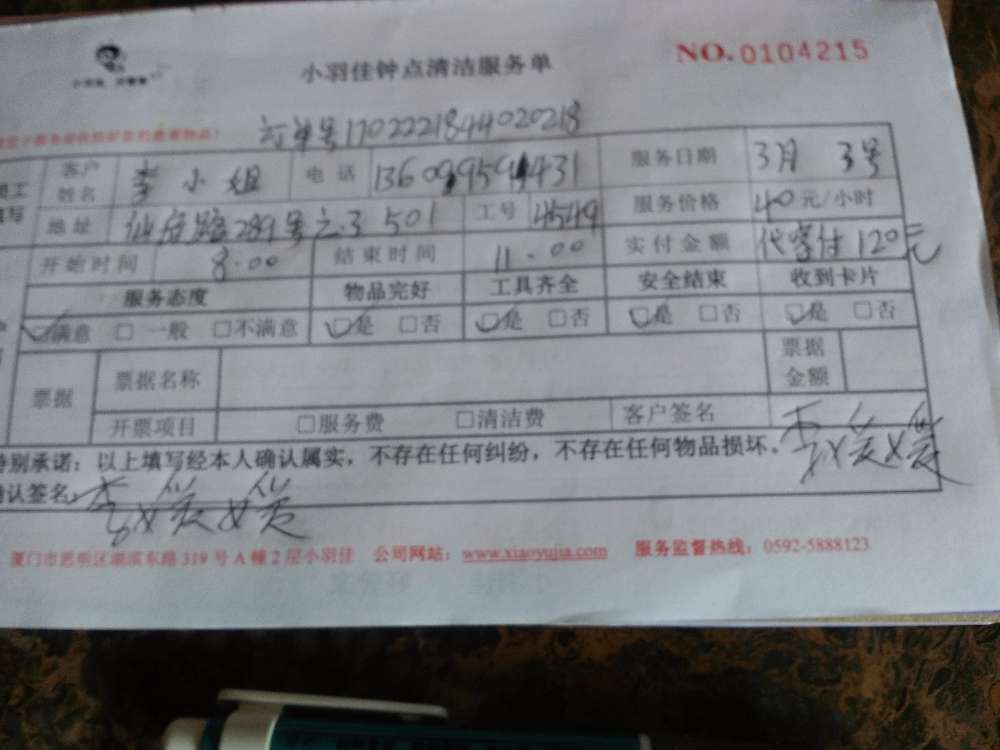 小羽佳钟点清洁服务单
NO.0104215
订单号1702221844020218
客户姓名 李小姐 电话 服务日期 3月 3号
地址 289号之3 501 工号 4549 服务价格 40元/小时
开始时间 8:00 结束时间 11:00 实付金额 代客付120元
服务态度 物品完好 工具齐全 安全结束 收到卡片
☑满意 □一般 □不满意 ☑是 □否 ☑是 □否 ☑是 □否 ☑是 □否
票据 票据名称 票据金额
开票项目 □服务费 □清洁费 客户签名 李媛媛
特别承诺：以上填写经本人确认属实，不存在任何纠纷，不存在任何物品损坏。
确认签名 李媛媛
厦门市思明区湖滨东路319号A幢2层小羽佳 公司网站：www.xiaoyujia.com 服务监督热线：0592-5888123